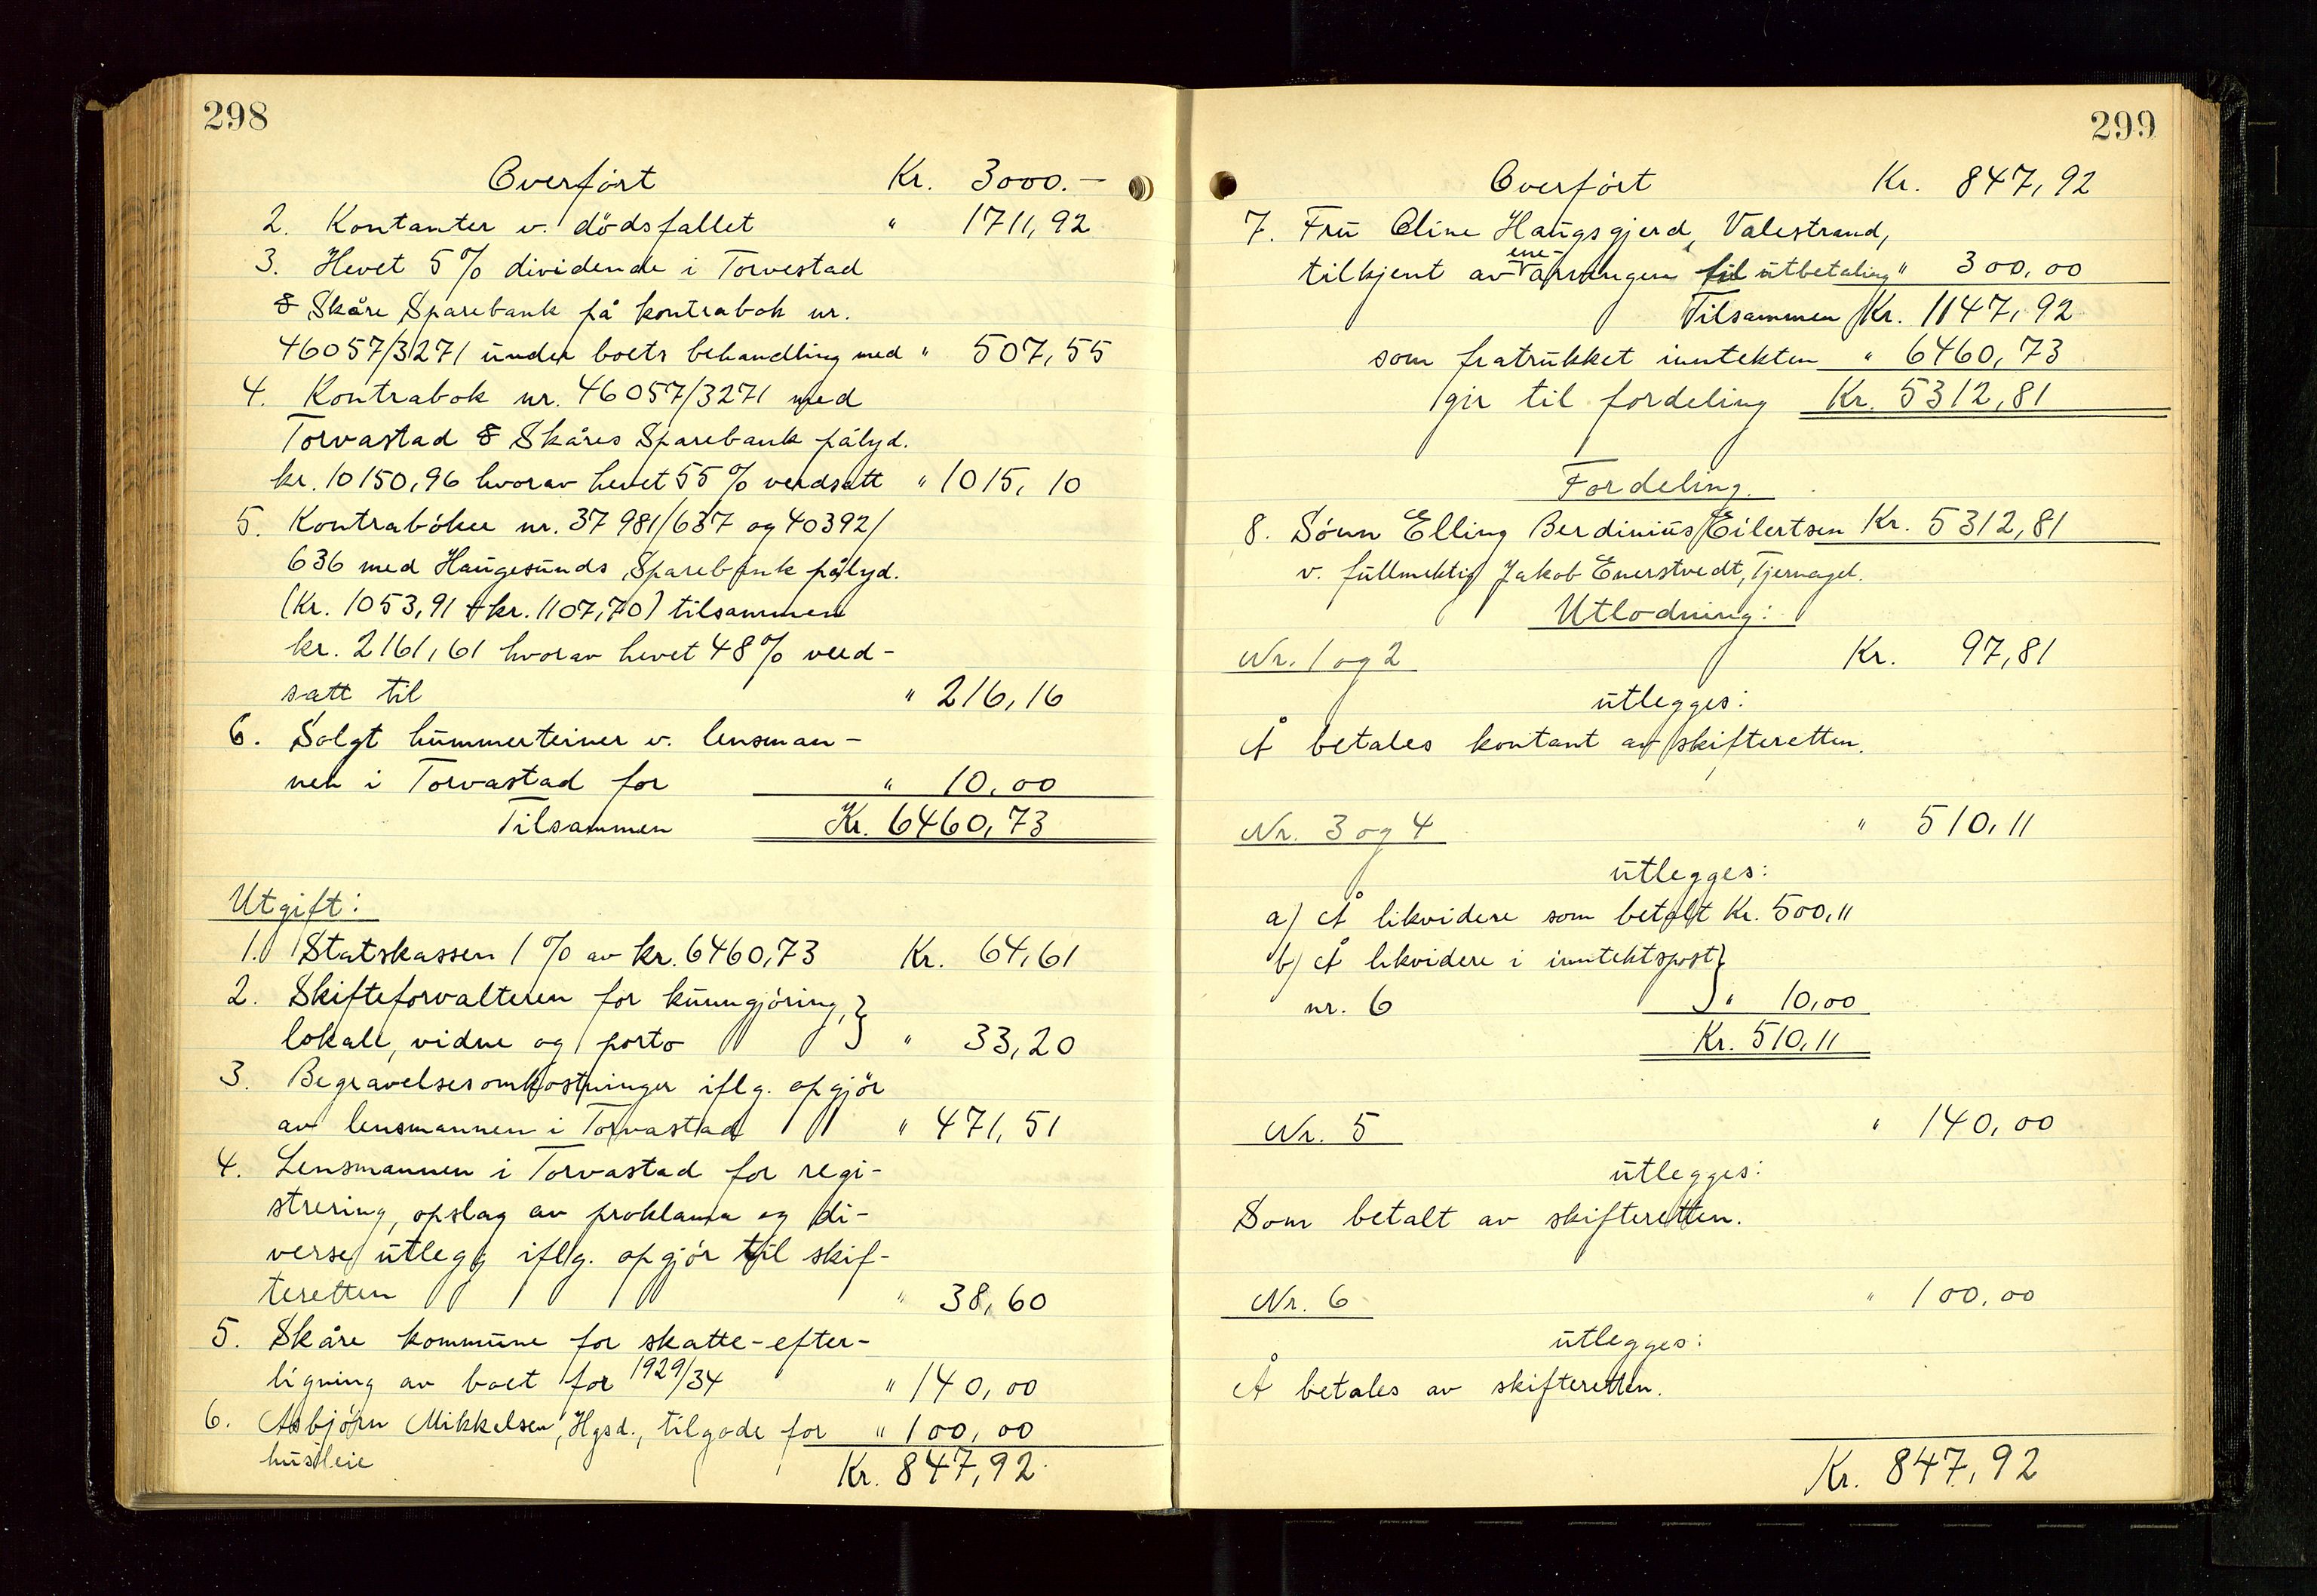 298
Overført Kr. 3000.-
2. Kontanter v. dödsfallet " 1711,92
3. Hevet 5% dividende i Torvestad
& Skåre Sparebank på kontrabok nr.
46057/3271 under boets behandling med " 507,55
4. Kontrabok nr. 46057/3271 med
Torvastad & Skåres Sparebank pålyd.
kr. 10150,96 hvorav hevet 55% verdsatt " 1015,10
5. Kontrabøker nr. 37981/637 og 40392/
636 med Haugesunds Sparebank pålyd.
(Kr. 1053,91 + kr. 1107,70) tilsammen
kr. 2161,61 hvorav hevet 48% verd-
satt til " 216,16
6. Solgt hummerteiner v. lensman-
nen i Torvastad for " 10,00
Tilsammen Kr. 6460,73
Utgift:
1. Statskassen 1% av kr. 6460,73 Kr. 64,61
2. Skifteforvalteren for kunngjöring,
lokale, vidne og porto } " 33,20
3. Begravelsesomkostninger iflg. opgjör
av lensmannen i Torvastad " 471,51
4. Lensmannen i Torvastad for regi-
strering, opslag av proklama og di-
verse utlegg iflg. opgjör til skif-
teretten " 38,60
5. Skåre kommune for skatte-efter-
ligning av boet for 1929/34 " 140,00
6. Asbjörn Mikkelsen, Hgsd., tilgode for " 100,00
husleie Kr. 847,92
299
Overført Kr. 847,92
7. Fru Oline Haugsgjerd, Valestrand,
tilkjent av ene-arvingen til utbetaling " 300,00
Tilsammen Kr. 1147,92
som fratrukket inntekten " 6460,73
gir til fordeling Kr. 5312,81
Fordeling.
8. Sönn Elling Berdinius Eilertsen Kr. 5312,81
v. fullmektig Jakob Enerstvedt, Tjernagel.
Utlodning:
Nr. 1 og 2 Kr. 97,81
utlegges:
Å betales kontant av skifteretten.
Nr. 3 og 4 " 510,11
utlegges:
a) Å likvidere som betalt Kr. 500,11
b) Å likvidere i inntektspost }
nr. 6 " 10,00
Kr. 510,11
Nr. 5 " 140,00
utlegges:
Som betalt av skifteretten.
Nr. 6 " 100,00
utlegges:
Å betales av skifteretten.
Kr. 847,92